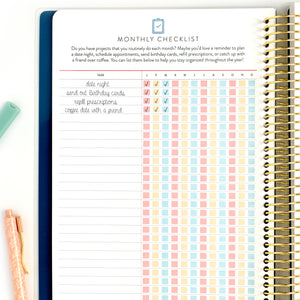 MONTHLY CHECKLIST
Do you have projects that you routinely do each month? Maybe you'd love a reminder to plan
a date night, schedule appointments, send birthday cards, refill prescriptions, or catch up with
a friend over coffee. You can list them below to help you stay organized throughout the year!
TASK J F M A M J J A S O N D
date night
send out birthday cards
refill prescriptions
coffee date with a friend